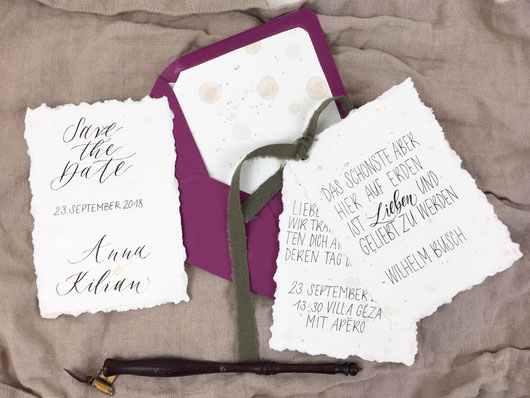 Save
the
Date
23. SEPTEMBER 2018
Anna
Kilian
DAS SCHÖNSTE ABER
HIER AUF ERDEN
IST Lieben UND
GELIEBT ZU WERDEN
- WILHELM BUSCH
LIEBE
WIR TRA
TEN DICH A
DEREN TAG
23. SEPTEMBER
13:30 VILLA GÉZA
MIT APÉRO